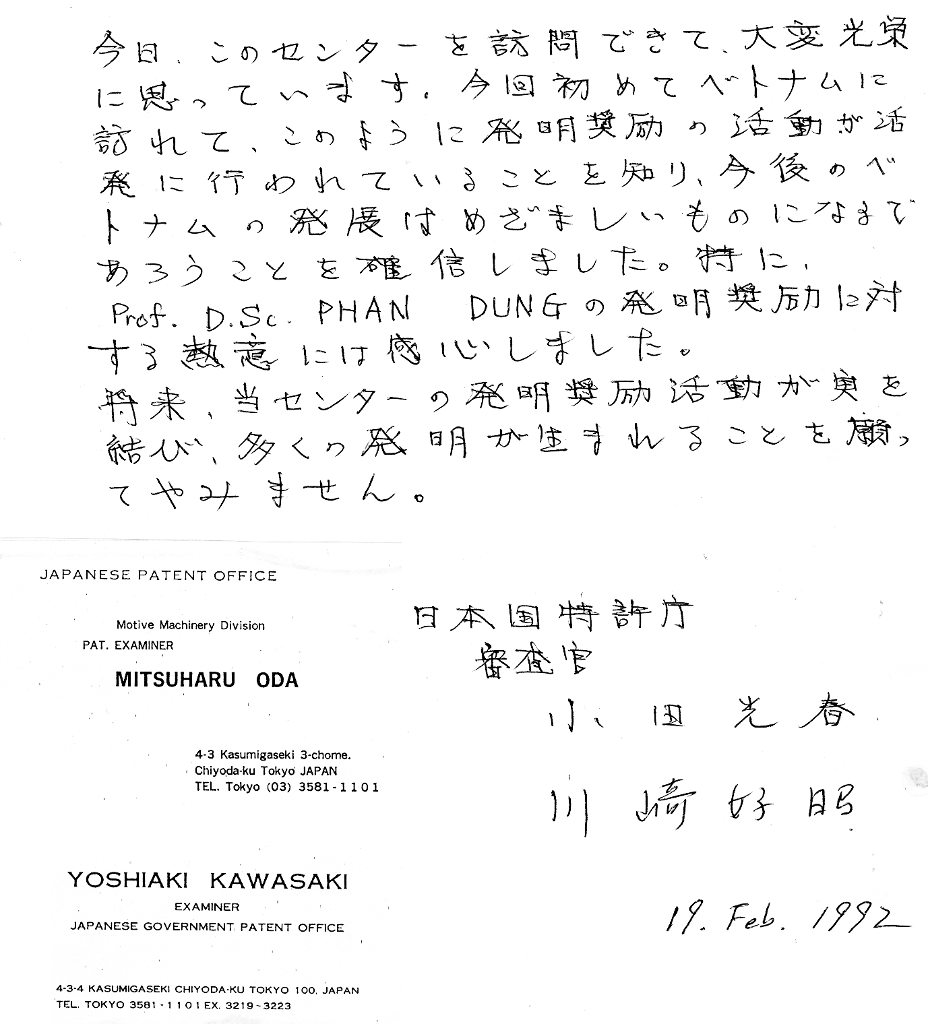 今日、このセンターを訪問できて、大変光栄
に思っています。今回初めてベトナムに
訪れて、このように発明奨励の活動が活
発に行われていることを知り、今後のベ
トナムの発展はめざましいものになるで
あろうことを確信しました。特に、
Prof. D.Sc. PHAN DUNGの発明奨励に対
する熱意には感心しました。
将来、当センターの発明奨励活動が実を
結び、多くの発明が生まれることを願っ
てやみません。
JAPANESE PATENT OFFICE
Motive Machinery Division
PAT. EXAMINER
MITSUHARU ODA
4-3 Kasumigaseki 3-chome.
Chiyoda-ku Tokyo JAPAN
TEL. Tokyo (03) 3581-1101
YOSHIAKI KAWASAKI
EXAMINER
JAPANESE GOVERNMENT PATENT OFFICE
4-3-4 KASUMIGASEKI CHIYODA-KU TOKYO 100, JAPAN
TEL. TOKYO 3581-1101 EX. 3219~3223
日本国特許庁
審査官
小田光春
川崎好昭
19. Feb. 1992